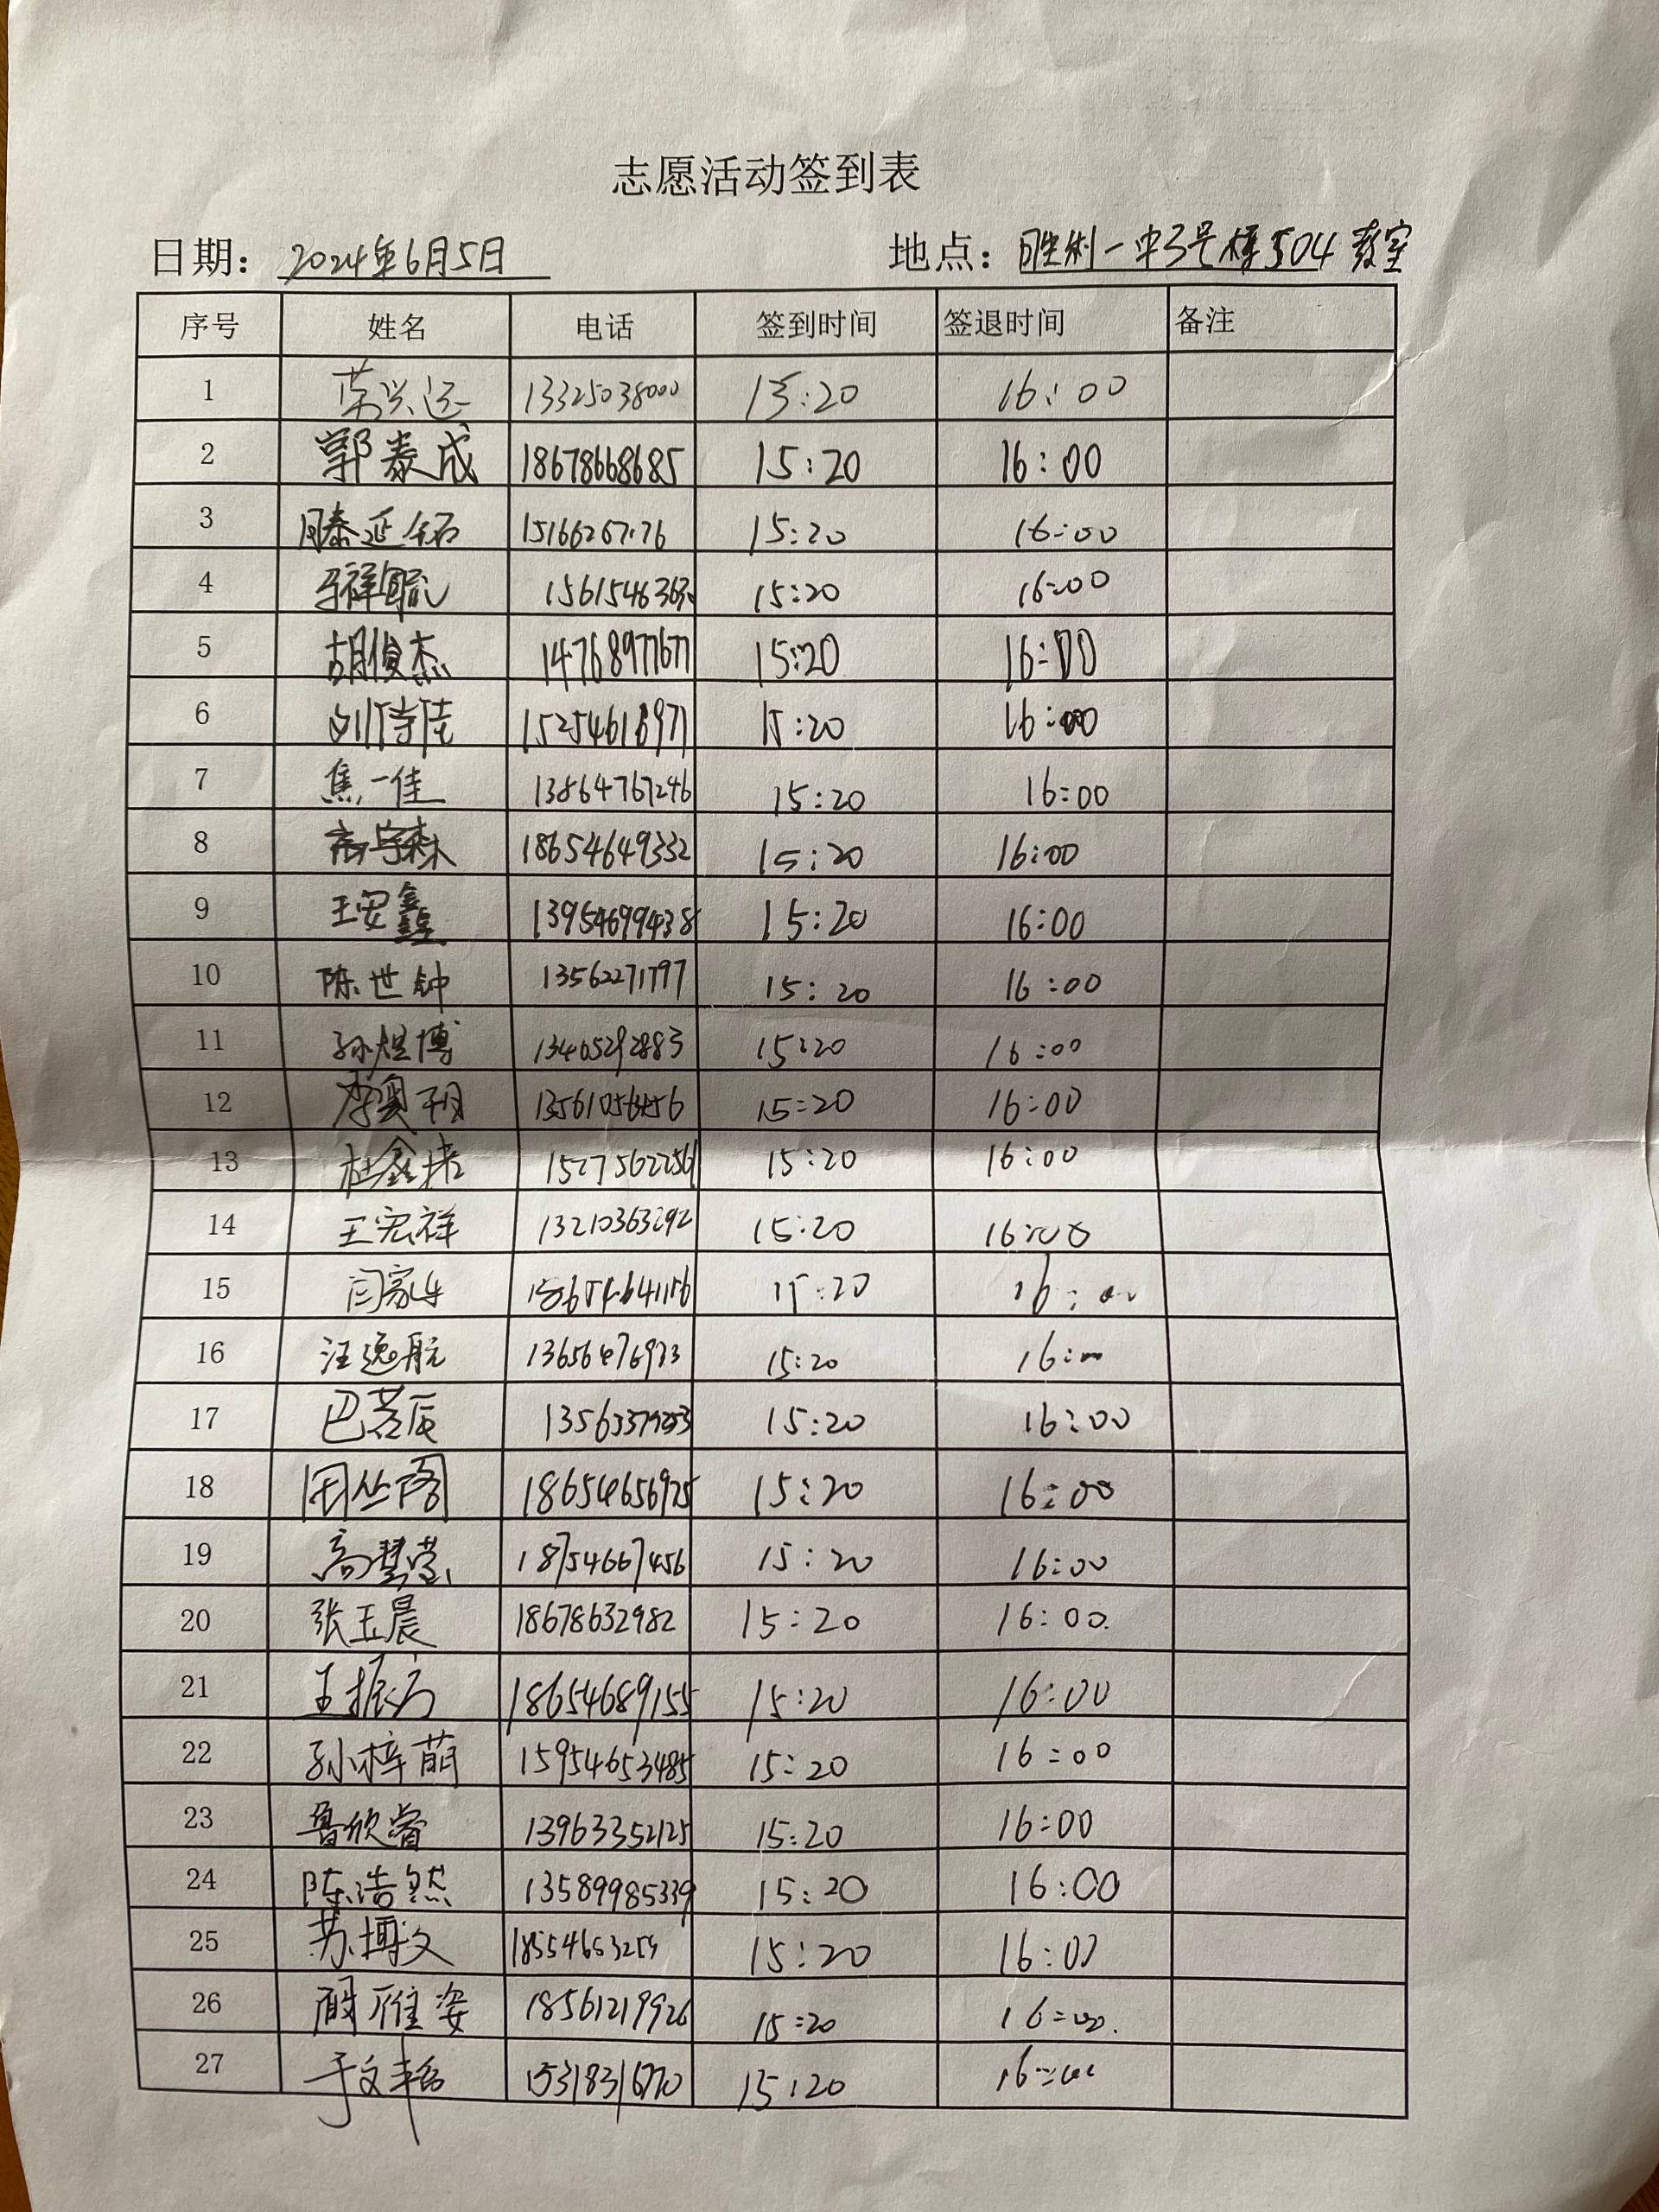 志愿活动签到表
日期：2024年6月5日 地点：胜利一中3号楼504教室
序号 姓名 电话 签到时间 签退时间 备注
1 荣兴运 13325038000 15:20 16:00
2 郭泰成 18678668685 15:20 16:00
3 滕延 15:20 16:00
4 15:20 16:00
5 胡俊杰 14768977677 15:20 16:00
6 15254616971 15:20 16:00
7 焦一佳 13864767246 15:20 16:00
8 高宇森 18654649332 15:20 16:00
9 王安鑫 13954699438 15:20 16:00
10 陈世钟 13562271797 15:20 16:00
11 孙煜博 13465292883 15:20 16:00
12 李奥 15:20 16:00
13 杜鑫 15275622256 15:20 16:00
14 王宏祥 13210363292 15:20 16:00
15 闫家 15:20 16:00
16 汪逸航 15:20 16:00
17 巴若辰 15:20 16:00
18 田丛阁 18654656925 15:20 16:00
19 高慧莹 18754667456 15:20 16:00
20 张玉晨 18678632982 15:20 16:00
21 王振方 18654689155 15:20 16:00
22 孙梓萌 15954653485 15:20 16:00
23 鲁欣睿 13963352125 15:20 16:00
24 陈浩然 13589985339 15:20 16:00
25 苏博文 15:20 16:00
26 雁姿 18561219926 15:20 16:00
27 于文 15318316770 15:20 16:00